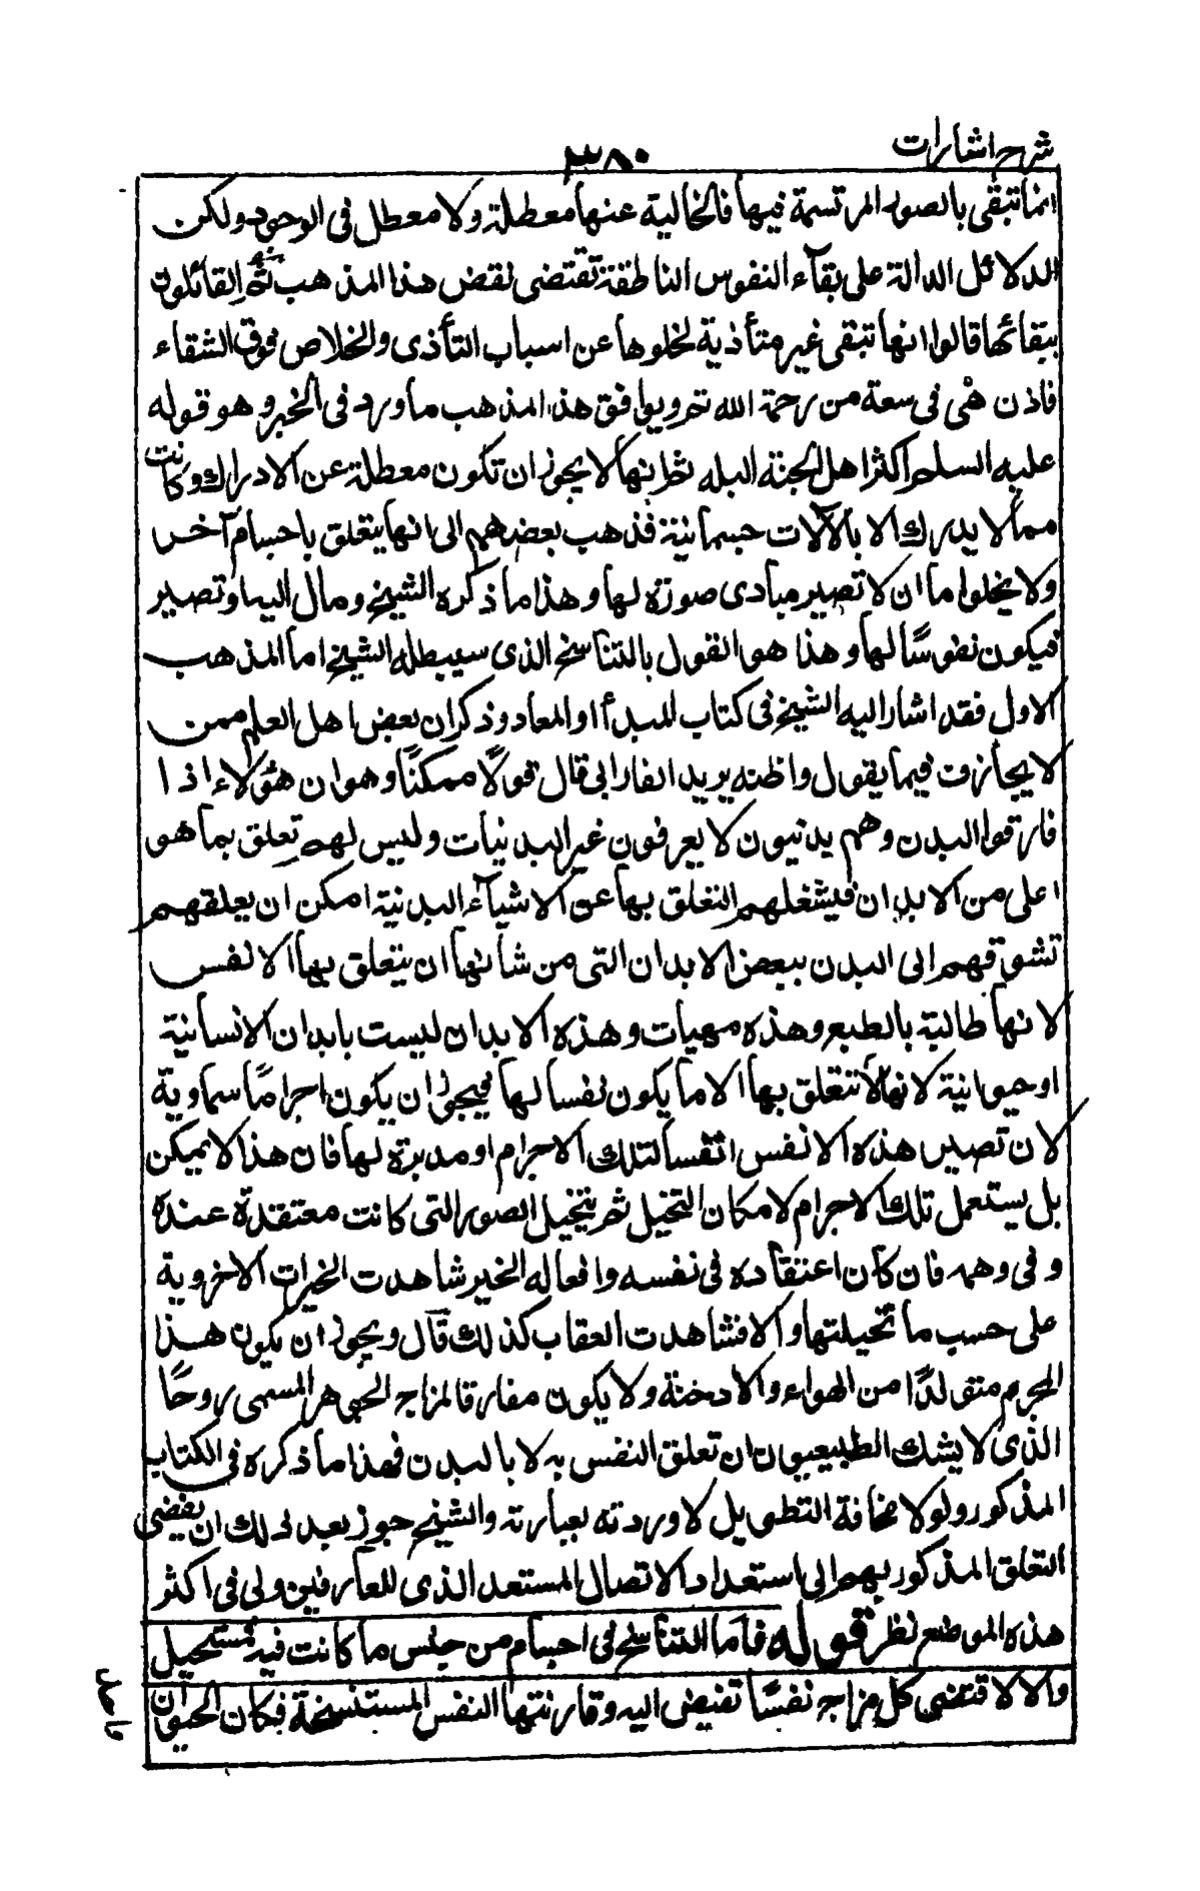 شرح اشارات
٣٨٠
انما تبقى بالصور المرتسمة فيها فالخالية عنها معطلة ولا معطل فى الوجود ولكن
الدلائل الدالة على بقآء النفوس الناطقة تقتضى نقض هذا المذهب ثم القائلون
ببقائها قالوا انها تبقى غير متأذية لخلوها عن اسباب التأذى والخلاص فوق الشقاء
فاذن هى فى سعة من رحمة الله تع ويوافق هذا المذهب ما ورد فى الخبر وهو قوله
عليه السلم اكثر اهل الجنة البله ثم انها لا يجوز ان تكون معطلة عن الادراك وكانت
مما لا يدرك الا بالآلات جسمانية فذهب بعضهم الى انها يتعلق باجسام آخر
ولا يخلوا ما ان لا تصير مبادى صورة لها وهذا ما ذكره الشيخ ومال اليه او تصير
فيكون نفوسًا لها وهذا هو القول بالتناسخ الذى سيبطله الشيخ اما المذهب
الاول فقد اشار اليه الشيخ فى كتاب المبدأ او المعاد وذكر ان بعض اهل العلم ممن
لا يجازف فيما يقول واظنه يريد الفارابى قال قولًا ممكنًا وهو ان هؤلاء اذا
فارقوا البدن وهم بدنيون لا يعرفون غير البدنيات وليس لهم تعلق بما هو
اعلى من الابدان فيشغلهم التعلق بها عن الاشيآء البدنية امكن ان يعلقهم
تشوقهم الى البدن ببعض الابدان التى من شأنها ان يتعلق بها الانفس
لانها طالبة بالطبع وهذه مهيات وهذه الابدان ليست بابدان الانسانية
او حيوانية لانها لا تتعلق بها الا ما يكون نفسا لها فيجوز ان يكون اجرامًا سماوية
لا ان تصير هذه الانفس انفسا لتلك الاجرام او مدبرة لها فان هذا لا يمكن
بل يستعمل تلك الاجرام لامكان التخيل ثم يتخيل الصور التى كانت معتقدة عنده
وفى وهمه فان كان اعتقاده فى نفسه وافعاله الخير شاهدت الخيرات الاخروية
على حسب ما تخيلتها والا فشاهدت العقاب كذلك قال ويجوز ان يكون هذا
الجرم متولدًا من الهواء والادخنة ولا يكون مفارقا لمزاج الجوهر المسمى روحًا
الذى لا يشك الطبيعيون ان تعلق النفس به لا بالبدن فهذا ما ذكره فى الكتاب
المذكور ولولا مخافة التطويل لاوردته بعبارته والشيخ جوز بعد ذلك ان يفضى
التعلق المذكور بهم الى استعداد الاتصال المستعد الذى للعارفين ولى فى اكثر
هذه المواضع نظر قوله فاما التناسخ فى اجسام من جنس ما كانت فيه فمستحيل
والا لاقتضى كل مزاج نفسًا تفيض اليه وقارنتها النفس المستنسخة فكان الحيوان